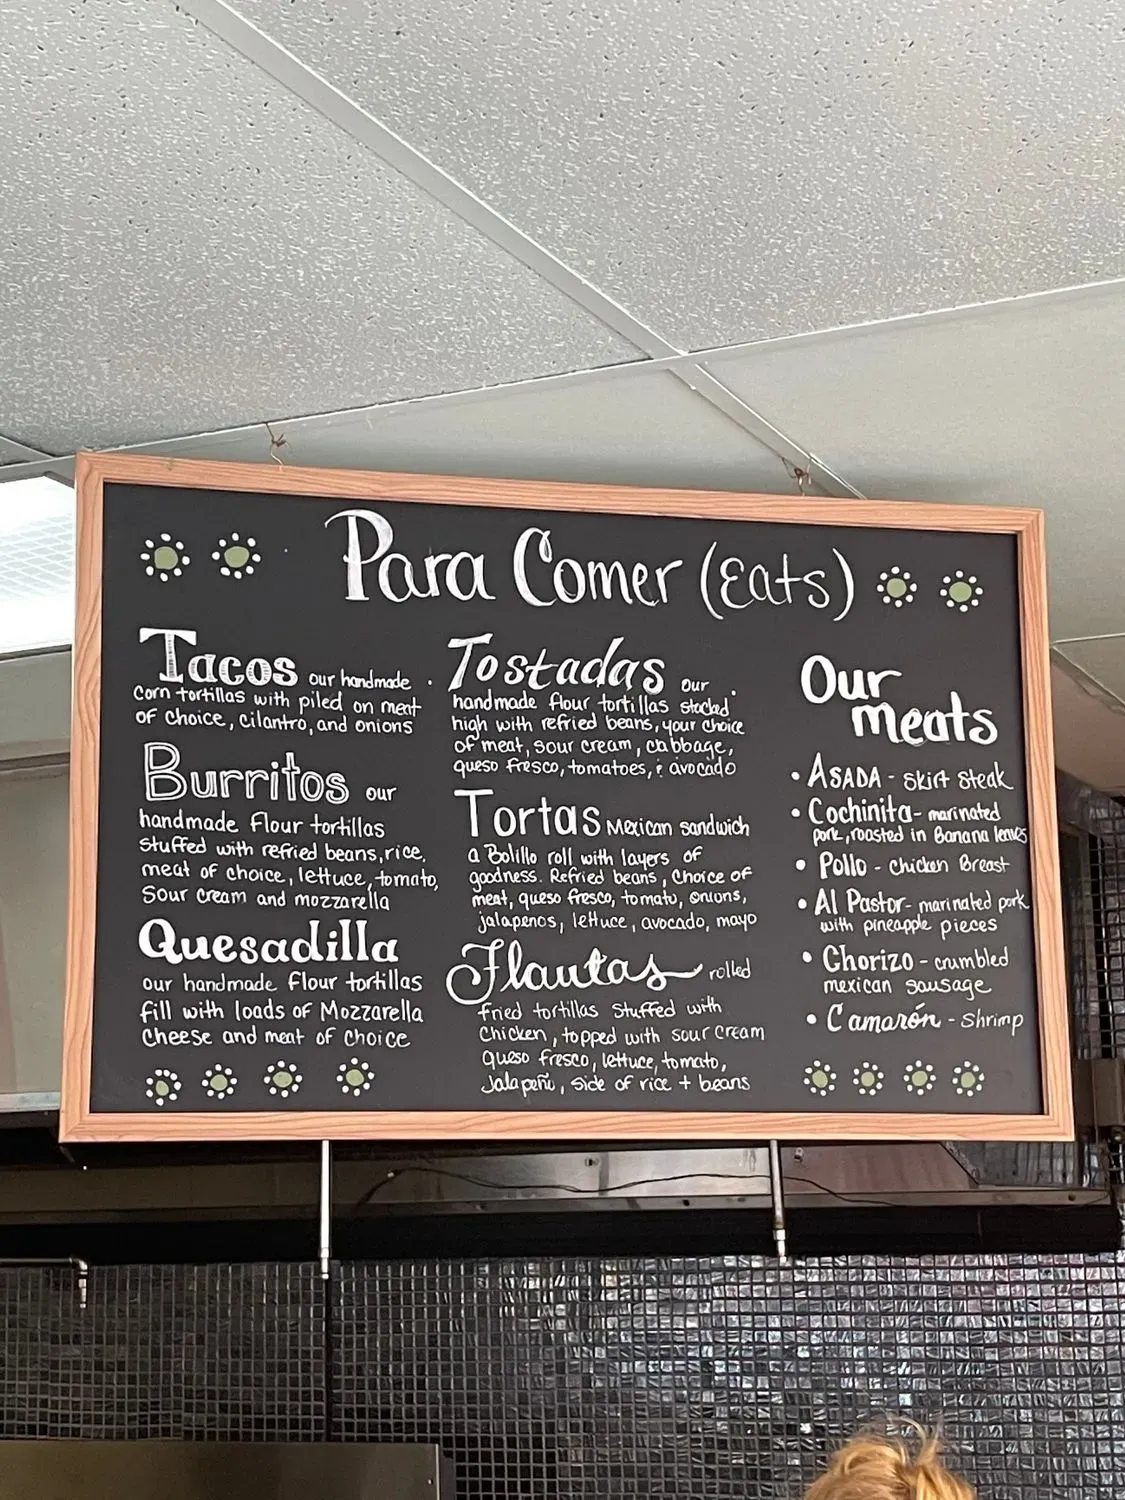 Para Comer (Eats)
Tacos our handmade
corn tortillas with piled on meat
of choice, cilantro, and onions
Burritos our
handmade flour tortillas
stuffed with refried beans, rice,
meat of choice, lettuce, tomato,
Sour cream and mozzarella
Quesadilla
our handmade flour tortillas
fill with loads of Mozzarella
Cheese and meat of choice
Tostadas our
handmade flour tortillas stacked
high with refried beans, your choice
of meat, sour cream, cabbage,
queso fresco, tomatoes, & avocado
Tortas Mexican sandwich
a Bolillo roll with layers of
goodness. Refried beans, Choice of
meat, queso fresco, tomato, onions,
jalapenos, lettuce, avocado, mayo
Flautas rolled
fried tortillas stuffed with
Chicken, topped with sour cream
queso fresco, lettuce, tomato,
Jalapeñi, side of rice + beans
Our
meats
• ASADA - Skirt Steak
• Cochinita - marinated
pork, roasted in Banana leaves
• Pollo - chicken Breast
• Al Pastor - marinated pork
with pineapple pieces
• Chorizo - crumbled
mexican sausage
• Camarón - Shrimp